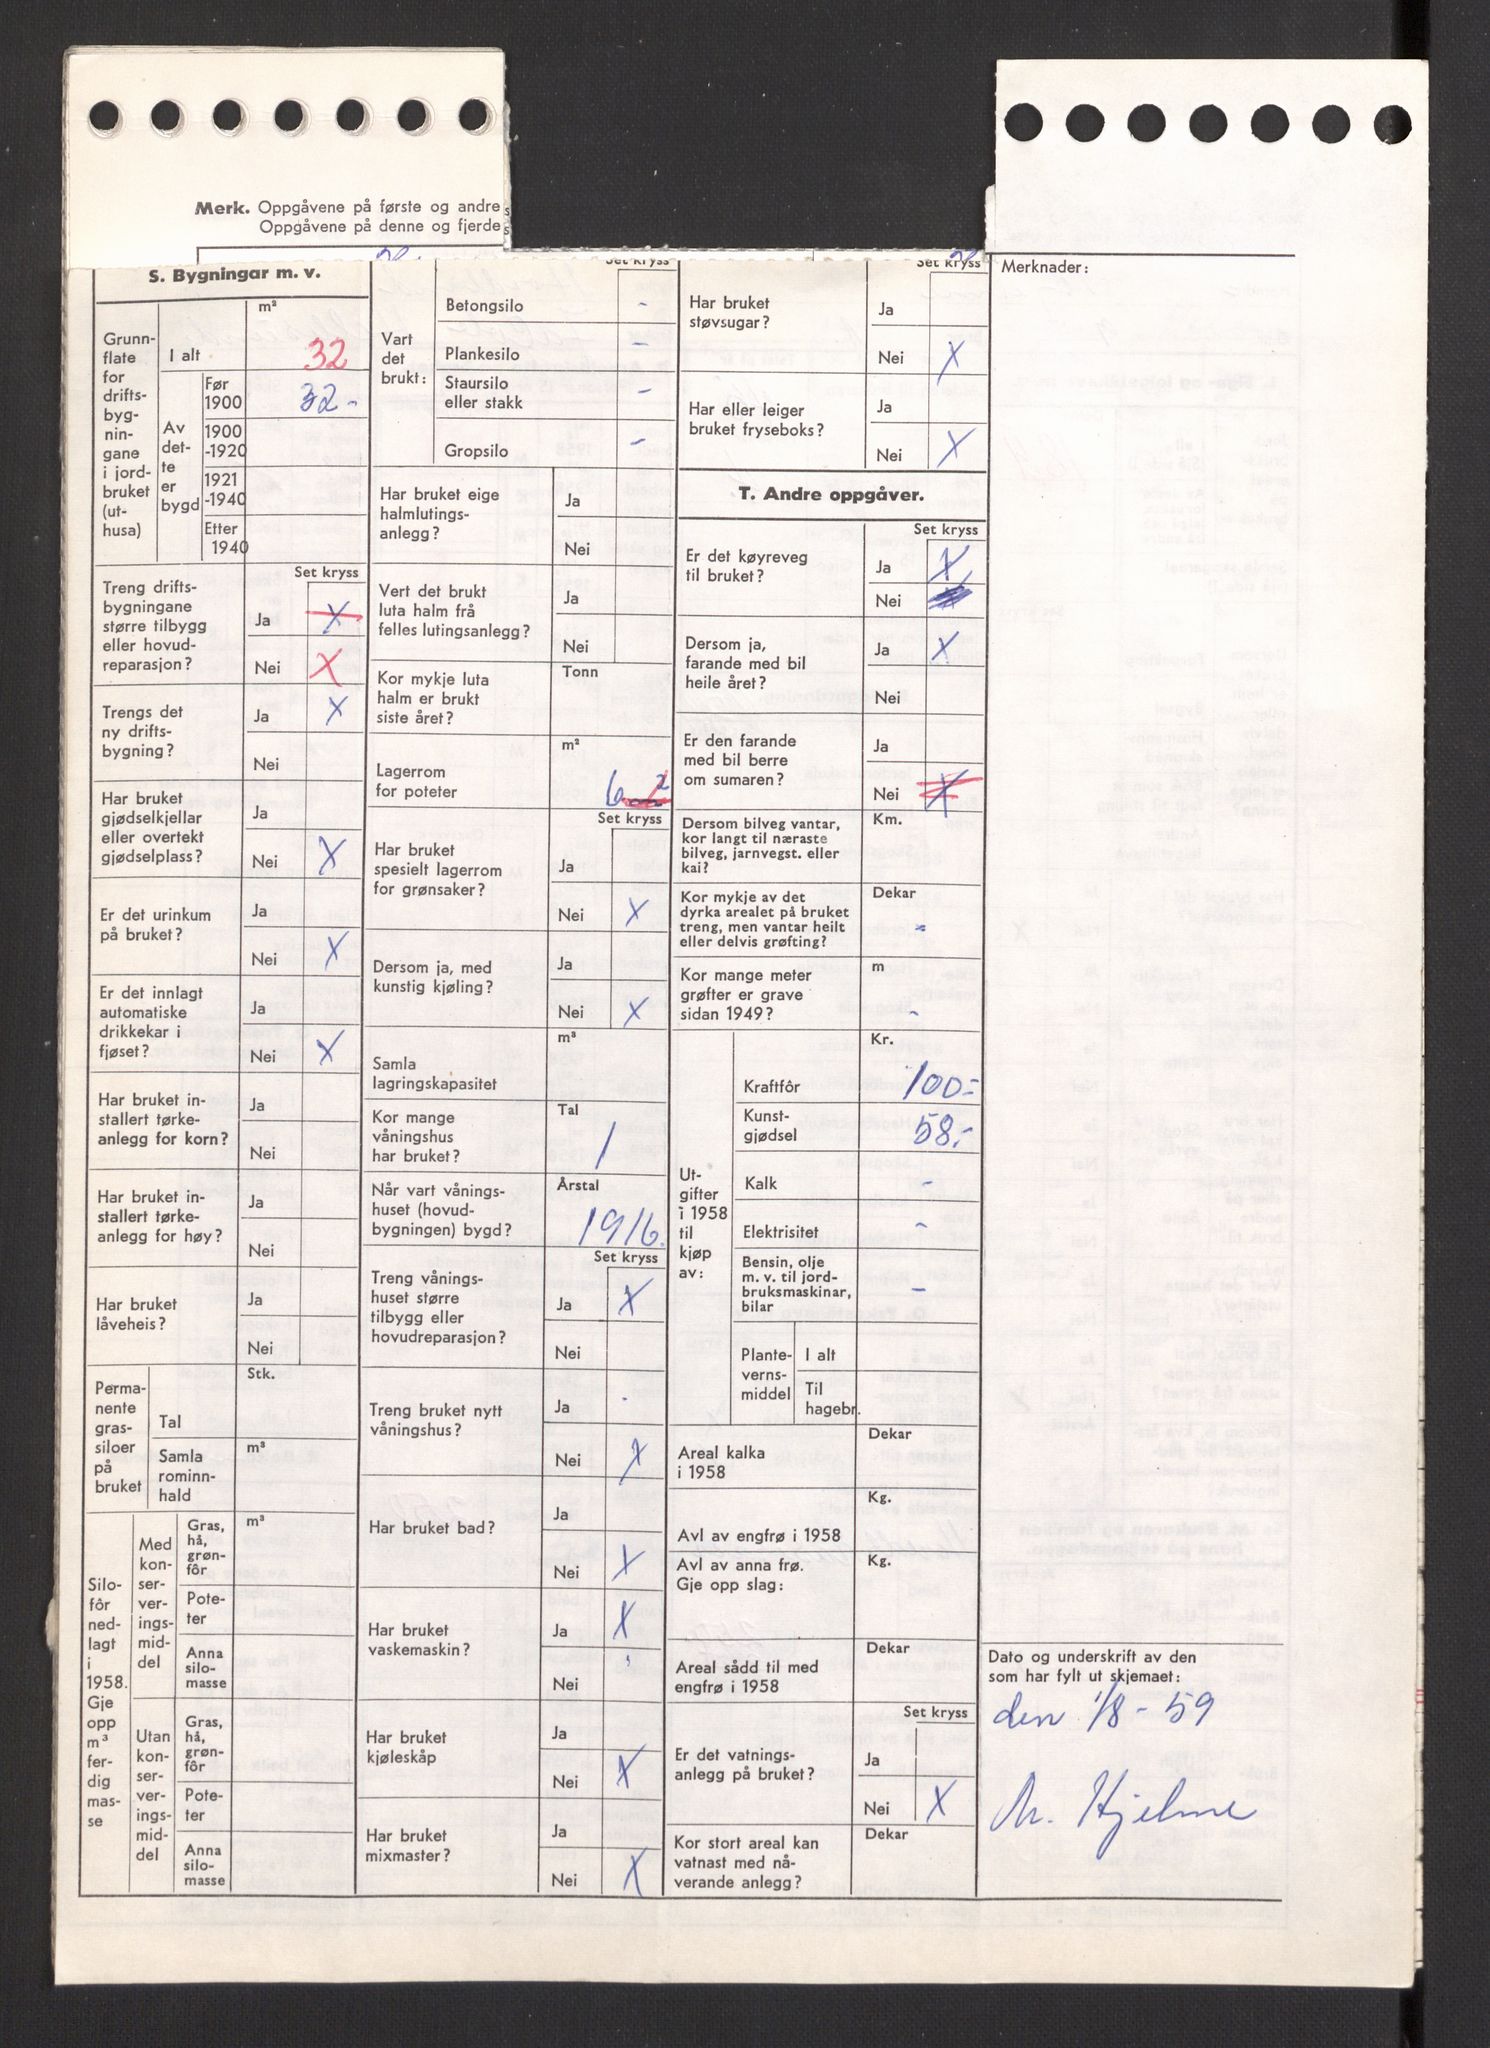 Merk. Oppgåvene på første og andre
Oppgåvene på denne og fjerde
S. Bygningar m. v.
m²
Grunn-
flate
for
drifts-
byg-
nin-
gane
i jord-
bruket
(ut-
husa)
I alt
32
Av
det-
te
er
bygd
Før
1900
32 -
1900
-1920
1921
-1940
Etter
1940
Set kryss
Treng drifts-
bygningane
større tilbygg
eller hovud-
reparasjon?
Ja
X
Nei
X
Trengs det
ny drifts-
bygning?
Ja
X
Nei
Har bruket
gjødselkjellar
eller overtekt
gjødselplass?
Ja
Nei
X
Er det urinkum
på bruket?
Ja
Nei
X
Er det innlagt
automatiske
drikkekar i
fjøset?
Ja
Nei
X
Har bruket in-
stallert tørke-
anlegg for korn?
Ja
Nei
Har bruket in-
stallert tørke-
anlegg for høy?
Ja
Nei
Har bruket
låveheis?
Ja
Nei
Perma-
nente
gras-
siloer
på
bruket
Stk.
Tal
m³
Samla
rominn-
hald
Silo-
fôr
ned-
lagt
i
1958.
Gje
opp
m³
fer-
dig
mas-
se
Med
kon-
ser-
ver-
ings-
mid-
del
Gras,
hå,
grøn-
fôr
m³
Pote-
ter
Anna
silo-
masse
Utan
kon-
ser-
ver-
ings-
mid-
del
Gras,
hå,
grøn-
fôr
Pote-
ter
Anna
silo-
masse
Set kryss
Vart
det
brukt:
Betongsilo
-
Plankesilo
-
Staursilo
eller stakk
-
Gropsilo
-
Har bruket eige
halmlutings-
anlegg?
Ja
Nei
Vert det brukt
luta halm frå
felles lutingsanlegg?
Ja
Nei
Kor mykje luta
halm er brukt
siste året?
Tonn
Lagerrom
for poteter
m²
6
Set kryss
Har bruket
spesielt lagerrom
for grønsaker?
Ja
Nei
X
Dersom ja, med
kunstig kjøling?
Ja
Nei
X
Samla
lagringskapasitet
m³
Kor mange
våningshus
har bruket?
Tal
1
Når vart vånings-
huset (hovud-
bygningen) bygd?
Årstal
1916.
Set kryss
Treng vånings-
huset større
tilbygg eller
hovudreparasjon?
Ja
X
Nei
Treng bruket nytt
våningshus?
Ja
Nei
X
Har bruket bad?
Ja
Nei
X
Har bruket
vaskemaskin?
Ja
X
Nei
Har bruket
kjøleskåp
Ja
Nei
X
Har bruket
mixmaster?
Ja
Nei
X
Set kryss
Har bruket
støvsugar?
Ja
Nei
X
Har eller leiger
bruket fryseboks?
Ja
Nei
X
T. Andre oppgåver.
Set kryss
Er det køyreveg
til bruket?
Ja
X
Nei
Dersom ja,
farande med bil
heile året?
Ja
X
Nei
Er den farande
med bil berre
om sumaren?
Ja
Nei
X
Dersom bilveg vantar,
kor langt til næraste
bilveg, jarnvegst. eller
kai?
Km.
Kor mykje av det
dyrka arealet på bruket
treng, men vantar heilt
eller delvis grøfting?
Dekar
-
Kor mange meter
grøfter er grave
sidan 1949?
m
-
Ut-
gifter
i 1958
til
kjøp
av:
Kr.
Kraftfôr
100:-
Kunst-
gjødsel
58.-
Kalk
-
Elektrisitet
-
Bensin, olje
m. v. til jord-
bruksmaskinar,
bilar
-
Plante-
verns-
middel
I alt
Til
hagebr.
Areal kalka
i 1958
Dekar
Avl av engfrø i 1958
Kg.
Avl av anna frø.
Gje opp slag:
Kg.
Areal sådd til med
engfrø i 1958
Dekar
Set kryss
Er det vatnings-
anlegg på bruket?
Ja
Nei
X
Kor stort areal kan
vatnast med nå-
verande anlegg?
Dekar
Merknader:
Dato og underskrift av den
som har fylt ut skjemaet:
den 1/8 - 59
M. Hjelme